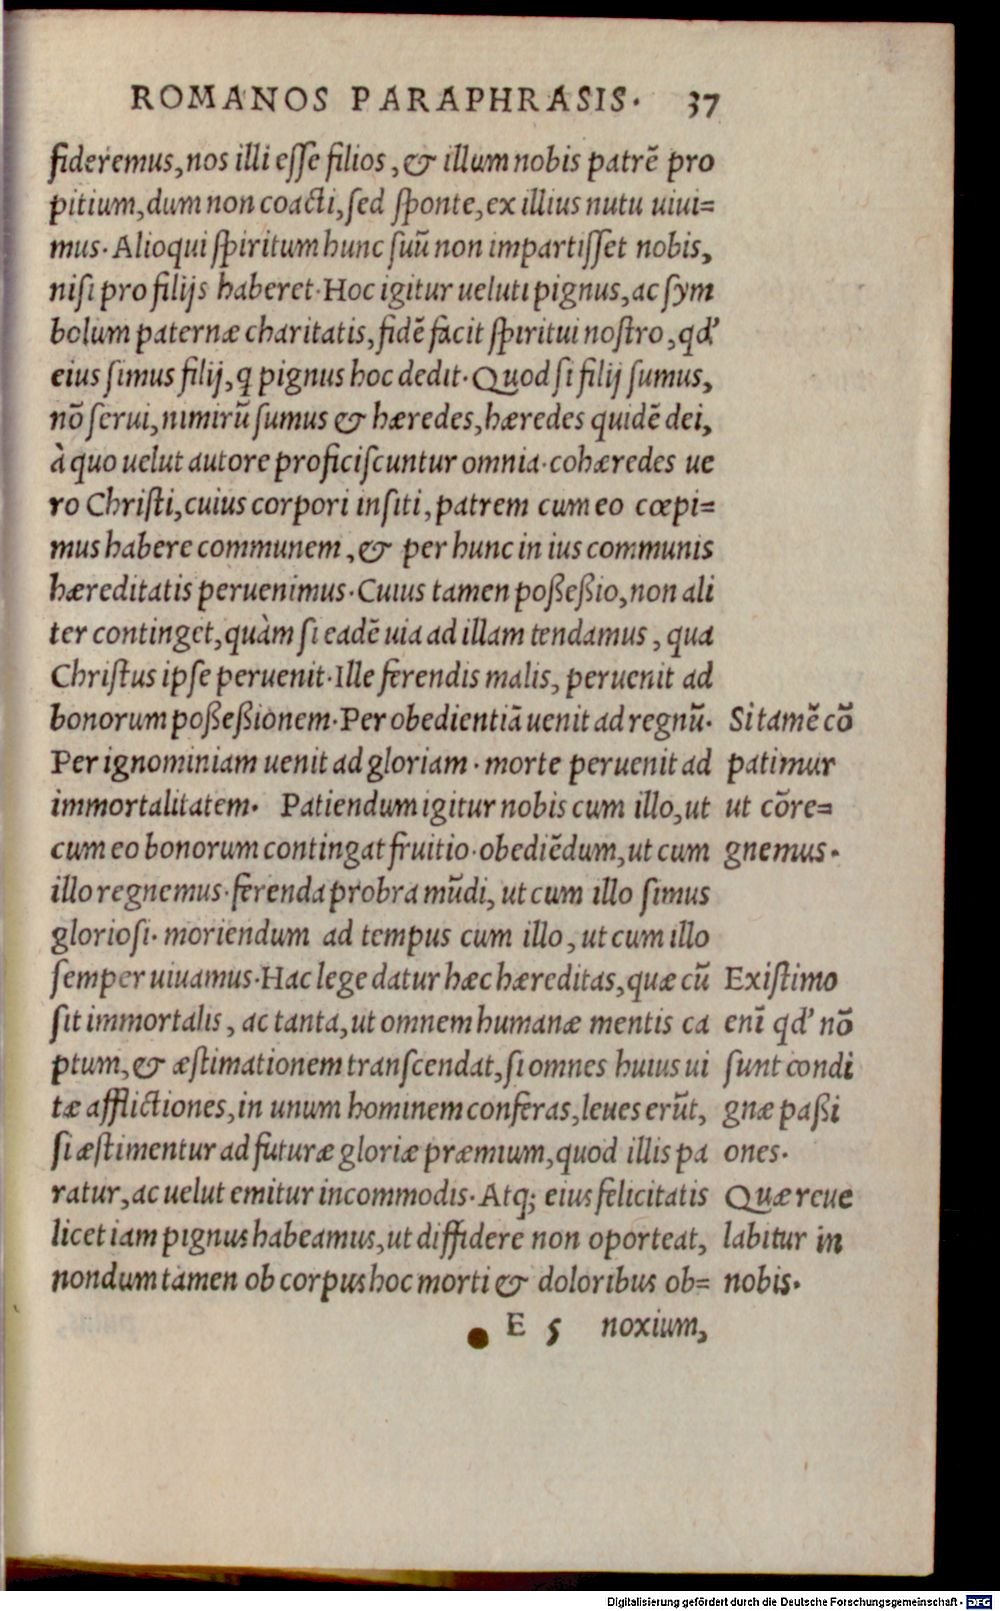 ROMANOS PARAPHRASIS. 37
fideremus, nos illi esse filios, & illum nobis patrẽ pro
pitium, dum non coacti, sed sponte, ex illius nutu uiui=
mus. Alioqui spiritum hunc suũ non impartisset nobis,
nisi pro filijs haberet. Hoc igitur ueluti pignus, ac sym
bolum paternæ charitatis, fidẽ facit spiritui nostro, qd'
eius simus filij, q pignus hoc dedit. Quod si filij sumus,
nõ serui, nimirũ sumus & hæredes, hæredes quidẽ dei,
à quo uelut autore proficiscuntur omnia. cohæredes ue
ro Christi, cuius corpori insiti, patrem cum eo cœpi=
mus habere communem, & per hunc in ius communis
hæreditatis peruenimus. Cuius tamen poßeßio, non ali
ter continget, quàm si eadẽ uia ad illam tendamus, qua
Christus ipse peruenit. Ille ferendis malis, peruenit ad
bonorum poßeßionem. Per obedientiã uenit ad regnũ.
Per ignominiam uenit ad gloriam. morte peruenit ad
immortalitatem. Patiendum igitur nobis cum illo, ut
cum eo bonorum contingat fruitio. obediẽdum, ut cum
illo regnemus. ferenda probra mũdi, ut cum illo simus
gloriosi. moriendum ad tempus cum illo, ut cum illo
semper uiuamus. Hac lege datur hæc hæreditas, quæ cũ
sit immortalis, ac tanta, ut omnem humanæ mentis ca
ptum, & æstimationem transcendat, si omnes huius ui
tæ afflictiones, in unum hominem conferas, leues erũt,
si æstimentur ad futuræ gloriæ præmium, quod illis pa
ratur, ac uelut emitur incommodis. Atq; eius felicitatis
licet iam pignus habeamus, ut diffidere non oporteat,
nondum tamen ob corpus hoc morti & doloribus ob=
E 5 noxium,
Si tamẽ cõ
patimur
ut cõre=
gnemus.
Existimo
enĩ qd' nõ
sunt condi
gnæ paßi
ones.
Quæ reue
labitur in
nobis.
Digitalisierung gefördert durch die Deutsche Forschungsgemeinschaft - DFG